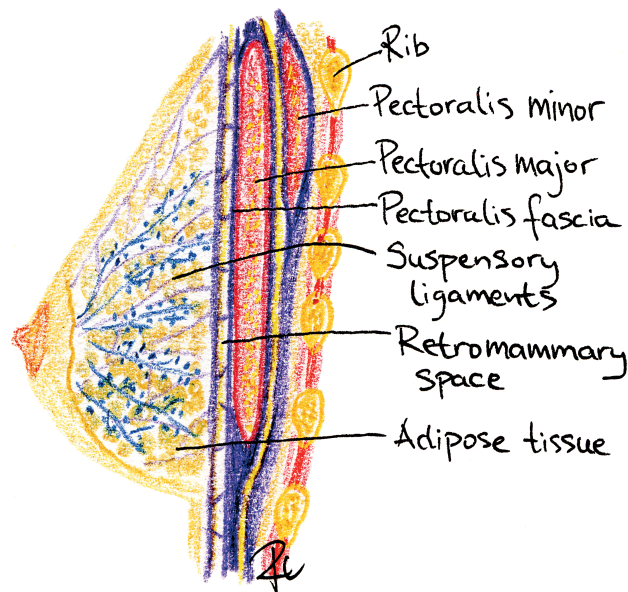 Rib
Pectoralis minor
Pectoralis major
Pectoralis fascia
Suspensory
ligaments
Retromammary
space
Adipose tissue